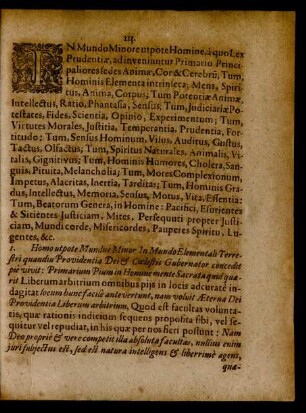 III.
IN Mundo Minore utpote Homine, à quo Lex
Prudentiæ, adinveniuntur Primariò Princi-
paliores sedes Animæ, Cor & Cerebrũ; Tum,
Hominis Elementa intrinseca; Mens, Spiri-
tus, Anima, Corpus; Tum Potentiæ Animæ,
Intellectus, Ratio, Phantasia, Sensus; Tum, Judiciariæ Po-
testates, Fides, Scientia, Opinio, Experimentum; Tum,
Virtutes Morales, Justitia, Temperantia, Prudentia, For-
titudo; Tum, Sensus Hominum, Visus, Auditus, Gustus,
Tactus, Olfactus; Tum, Spiritus Naturales, Animalis, Vi-
talis, Gignitivus; Tum, Hominis Humores, Cholera, San-
guis, Pituita, Melancholia; Tum, Mores Complexionum,
Impetus, Alacritas, Inertia, Tarditas; Tum, Hominis Gra-
dus, Intellectus, Memoria, Sensus, Motus, Vita, Essentia:
Tum, Beatorum Genera, in Homine: Pacifici, Esurientes
& Sitientes Justiciam, Mites, Persequuti propter Justi-
ciam, Mundi corde, Misericordes, Pauperes Spiritu, Lu-
gentes, &c.
1. Homo utpote Mundus Minor In Mundo Elementali Terre-
stri quandiu Providentia Dei & Cælestis Gubernator concedit
piè vivit: Primarium Pium in Homine mente Sacrata quod quæ-
rit Liberum arbitrium omnibus pijs in locis adcuratè inda-
gitat locum hunc facilè antevertunt, nam voluit Æterna Dei
Providentia Liberum arbitrium, Quod est facultas volunta-
tis, quæ rationis indicium sequens proposita sibi, vel se-
quitur vel repudiat, in his quæ per nos fieri possunt: Nam
Deo propriè & verè competit illa absoluta facultas, nullius enim
juri subjectus est, sed est natura intelligens & liberrimè agens,
quæ-